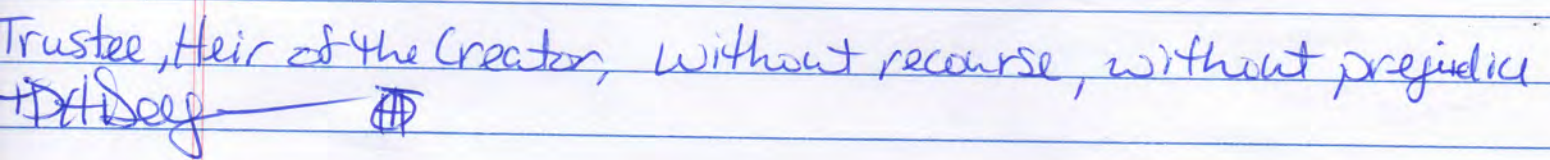 Trustee, Heir of the Creator, without recourse, without prejudice